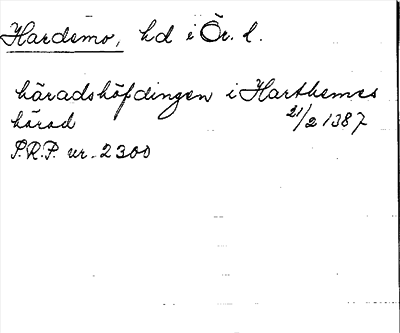 Hardemo, hd i Ör. l.
häradshöfdingen i Harthemes
härad 21/2 1387
S.R.P. nr. 2300